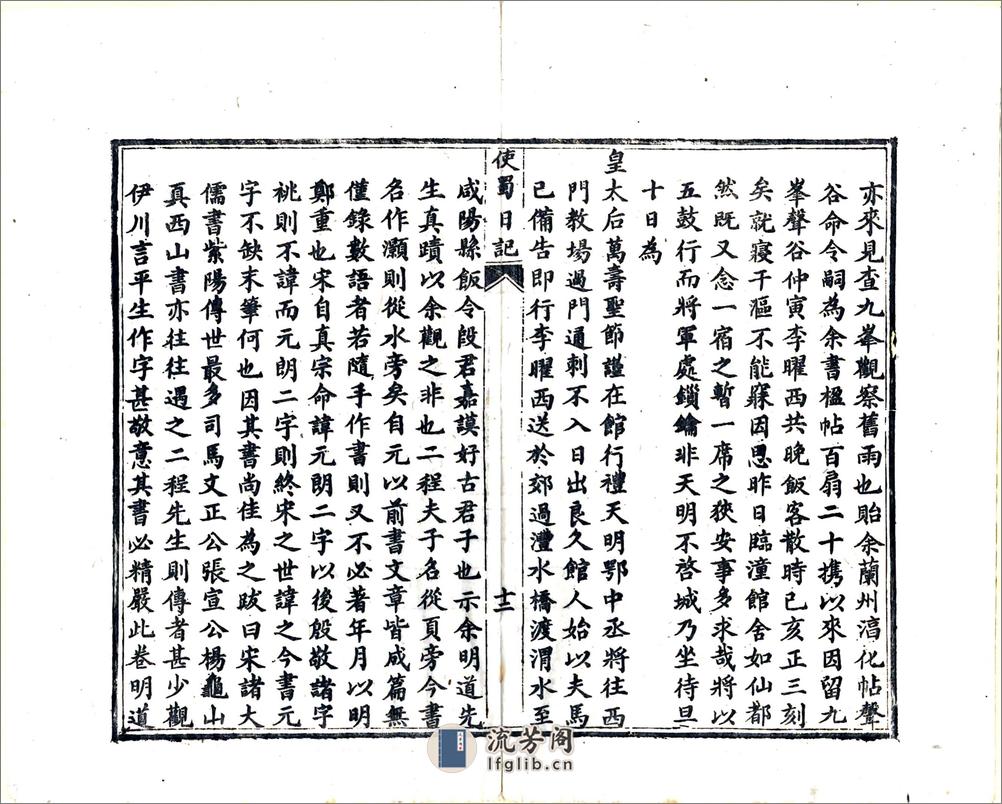 亦來見查九峯觀察舊雨也貽余蘭州湻化帖聲
谷命令嗣為余書楹帖百扇二十携以來因留九
峯聲谷仲寅李曜西共晚飯客散時已亥正三刻
矣就寢干漚不能寐因思昨日臨潼館舍如仙都
然既又念一宿之暫一席之狹安事多求哉將以
五鼓行而將軍處鎖鑰非天明不啓城乃坐待旦
十日為
皇太后萬壽聖節謹在館行禮天明鄂中丞將往西
門教場過門通刺不入日出良久館人始以夫馬
已備告即行李曜西送於郊過灃水橋渡渭水至
使蜀日記
十二
咸陽縣飯令段君嘉謨好古君子也示余明道先
生真蹟以余觀之非也二程夫子名從頁旁今書
名作灝則從水旁矣自元以前書文章皆成篇無
僅錄數語者若隨手作書則又不必著年月以明
鄭重也宋自真宗命諱元朗二字以後殷敬諸字
祧則不諱而元朗二字則終宋之世諱之今書元
字不缺末筆何也因其書尚佳為之跋曰宋諸大
儒書紫陽傳世最多司馬文正公張宣公楊龜山
真西山書亦往往遇之二程先生則傳者甚少觀
伊川言平生作字甚敬意其書必精嚴此卷明道
流芳阁
lfglib.cn